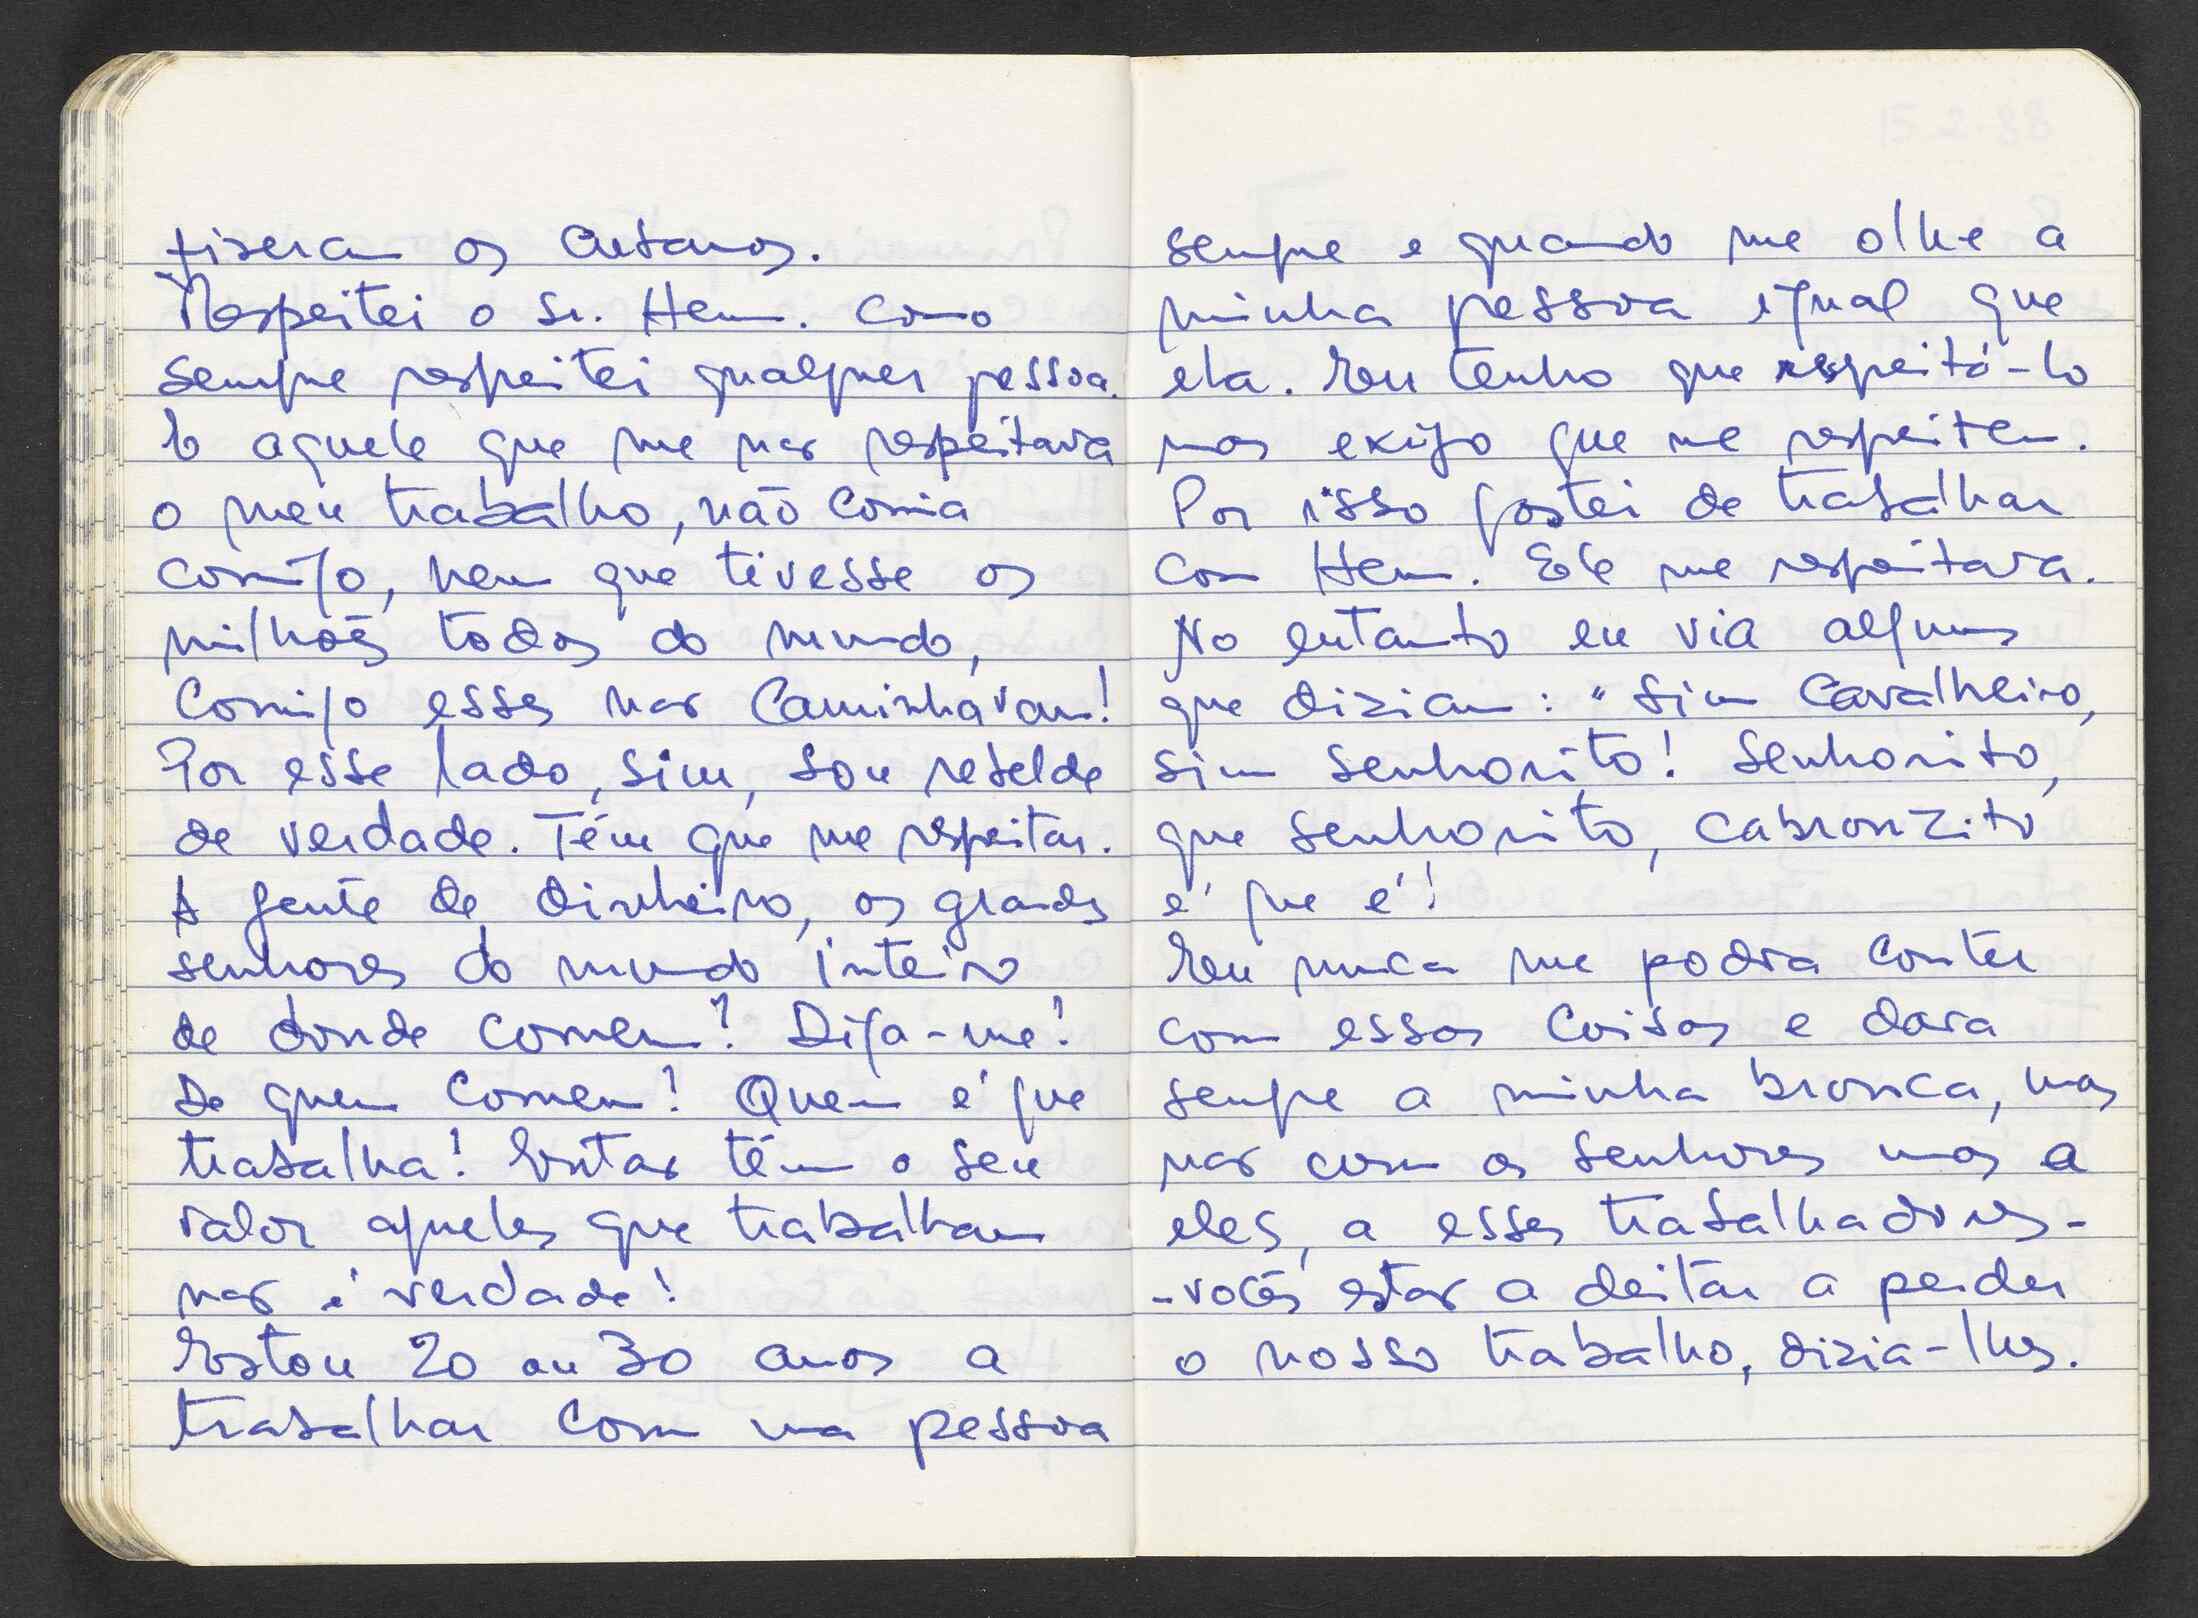 fizeram os Caetanos.
Respeitei o Sr. Hem. como
sempre respeitei qualquer pessoa.
E aquele que me nao respeitava
o meu trabalho, não comia
comigo, nem que tivesse os
milhões todos do mundo,
Comigo esses nao Caminhavam!
Por esse lado, sim, sou rebelde
de verdade. Têm que me respeitar.
A gente de dinheiro, os grandes
senhores do mundo inteiro
de donde comem? Diga-me!
De quem comem! Quem é que
trabalha! Entao têm o seu
valor aqueles que trabalham
nao é verdade!
Estou 20 ou 30 anos a
trabalhar com uma pessoa
sempre e quando me olhe a
minha pessoa igual que
ela. Eu tenho que respeitá-lo
mas exijo que me respeitem.
Por isso gostei de trabalhar
com Hem. Ele me respeitava.
No entanto eu via alguns
que diziam: "Sim Cavalheiro,
sim senhorito! Senhorito,
que senhorito, cabronzito
é que é!
Eu nunca me podia conter
com essas Coisas e dava
sempre a minha bronca, mas
nao com os senhores mas a
eles, a esses trabalhadores-
-vocês estao a deitar a perder
o nosso trabalho, dizia-lhes.